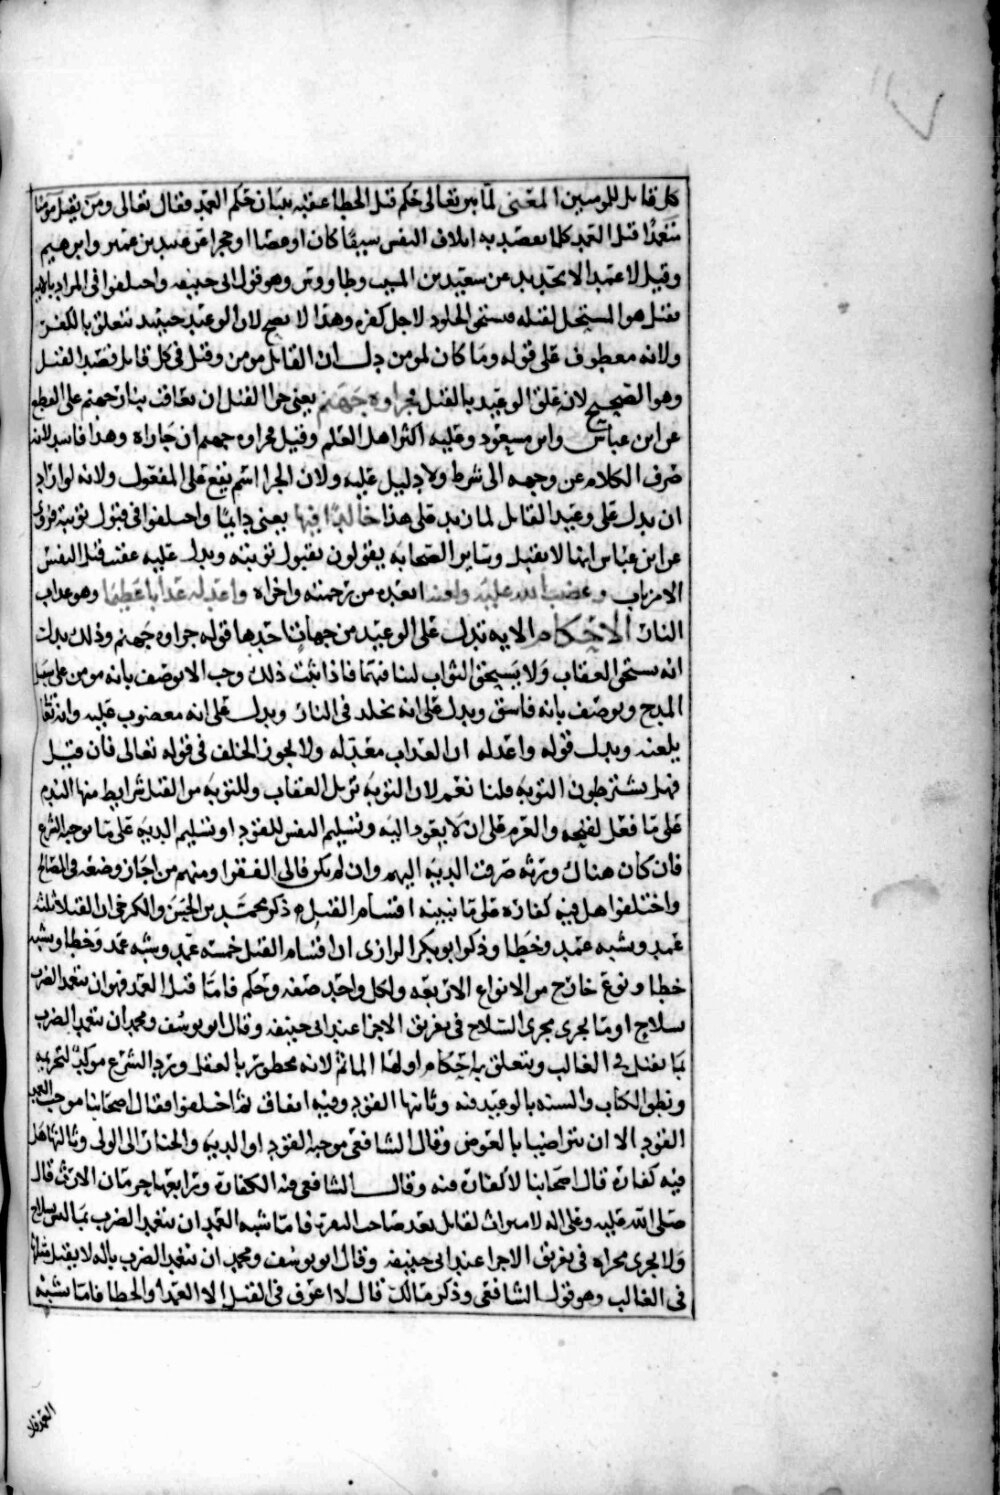 كل قاتل للمومنين المعنى لما بين تعالى حكم قتل الخطا عقبه ببيان حكم العمد فقال تعالى ومن يقتل مومنا
متعمدا قتل العمد كلما يقصد به اتلاف النفس سيفا كان او عصا او حجرا عن عبيد بن عمير وابرهيم
وقيل لا عمد الا بحديد عن سعيد بن المسيب وطاووس وهو قول ابى حنيفه واختلفوا فى المراد بالايه
فقيل هو المستحل لقتله فيستحق الخلود لاجل كفره وهذا لا يصح لان الوعيد حينيد يتعلق بالكفر
ولانه معطوف على قوله وما كان لمومن دل ان القاتل مومن وقيل فى كل قاتل قصد القتل
وهو الصحيح لان علق الوعيد بالقتل فجزاوه جهنم يعنى جزا القتل ان يعاقب بنار جهنم على القطع
عن ابن عباس وابن مسعود وعليه اكثر اهل العلم وقيل جزاوه جهنم ان جازاه وهذا فاسد لانه
صرف الكلام عن وجهه الى شرط ولا دليل عليه ولان الجزا اسم يقع على المفعول ولانه لو اراد
ان يدل على وعيد القاتل لما زيد على هذا خالدا فيها يعنى دايما واختلفوا فى قبول توبته فروى
عن ابن عباس انها لا تقبل وساير الصحابه يقولون بقبول توبته ويدل عليه عقيب قتل النفس
الا من تاب وغضب الله عليه ولعنه ابعده من رحمته واخزاه واعد له عذابا عظيما وهو عذاب
النار الاحكام الايه تدل على الوعيد من جهات احدها قوله جزاوه جهنم وذلك يدل
انه يستحق العقاب ولا يستحق الثواب لتنافيهما فاذا ثبت ذلك وجب الا يوصف بانه مومن على سبيل
المدح ويوصف بانه فاسق ويدل على انه يخلد فى النار ويدل على انه مغضوب عليه وانه تعالى
يلعنه ويدل قوله واعد له ان العذاب معد له ولا يجوز الخلف فى قوله تعالى فان قيل
فهل يشترطون التوبه قلنا نعم لان التوبه تزيل العقاب وللتوبه من القتل شرايط منها الندم
على ما فعل لقبحه والعزم على ان لا يعود اليه وتسليم النفس للقود او تسليم الديه على ما يوجبه الشرع
فان كان هناك ورثه صرفت الديه اليهم وان لم يكن فالى الفقرا ومنهم من اجاز وضعه فى المصالح
واختلفوا هل فيه كفاره على ما نبينه اقسام القتل ذكر محمد بن الحسن والكرخى ان القتل ثلثه
عمد وشبه عمد وخطا وذكر ابو بكر الرازى ان اقسام القتل خمسه عمد وشبه عمد وخطا وشبه
خطا ونوع خارج من الانواع الاربعه ولكل واحد صفه وحكم فاما قتل العمد فهو ان يتعمد الضرب
بسلاح او ما يجرى مجرى السلاح فى تفريق الاجزا عند ابى حنيفه وقال ابو يوسف ومحمد ان يتعمد الضرب
بما يقتل فى الغالب ويتعلق به احكام اولها الماثم لانه محظور بالعقل وورد الشرع موكدا لتحريمه
ونطق الكتاب والسنه بالوعيد فيه وثانيها القود وفيه اتفاق ثم اختلفوا فقال اصحابنا موجب العمد
القود الا ان يتراضيا بالعوض وقال الشافعى موجبه القود او الديه والخيار الى الولى وثالثها هل
فيه كفارة قال اصحابنا لا كفارة فيه وقال الشافعى فيه الكفارة ورابعها حرمان الارث قال
صلى الله عليه وعلى اله لا ميراث لقاتل بعد صاحب البقره فاما شبه العمد ان يتعمد الضرب بما ليس بسلاح
ولا يجرى مجراه فى تفريق الاجزا عند ابى حنيفه وقال ابو يوسف ومحمد ان يتعمد الضرب باله لا يقتل مثلها
فى الغالب وهو قول الشافعى وذكر مالك قال لا اعرف فى القتل الا العمد او الخطا فاما شبه
العمد فلا